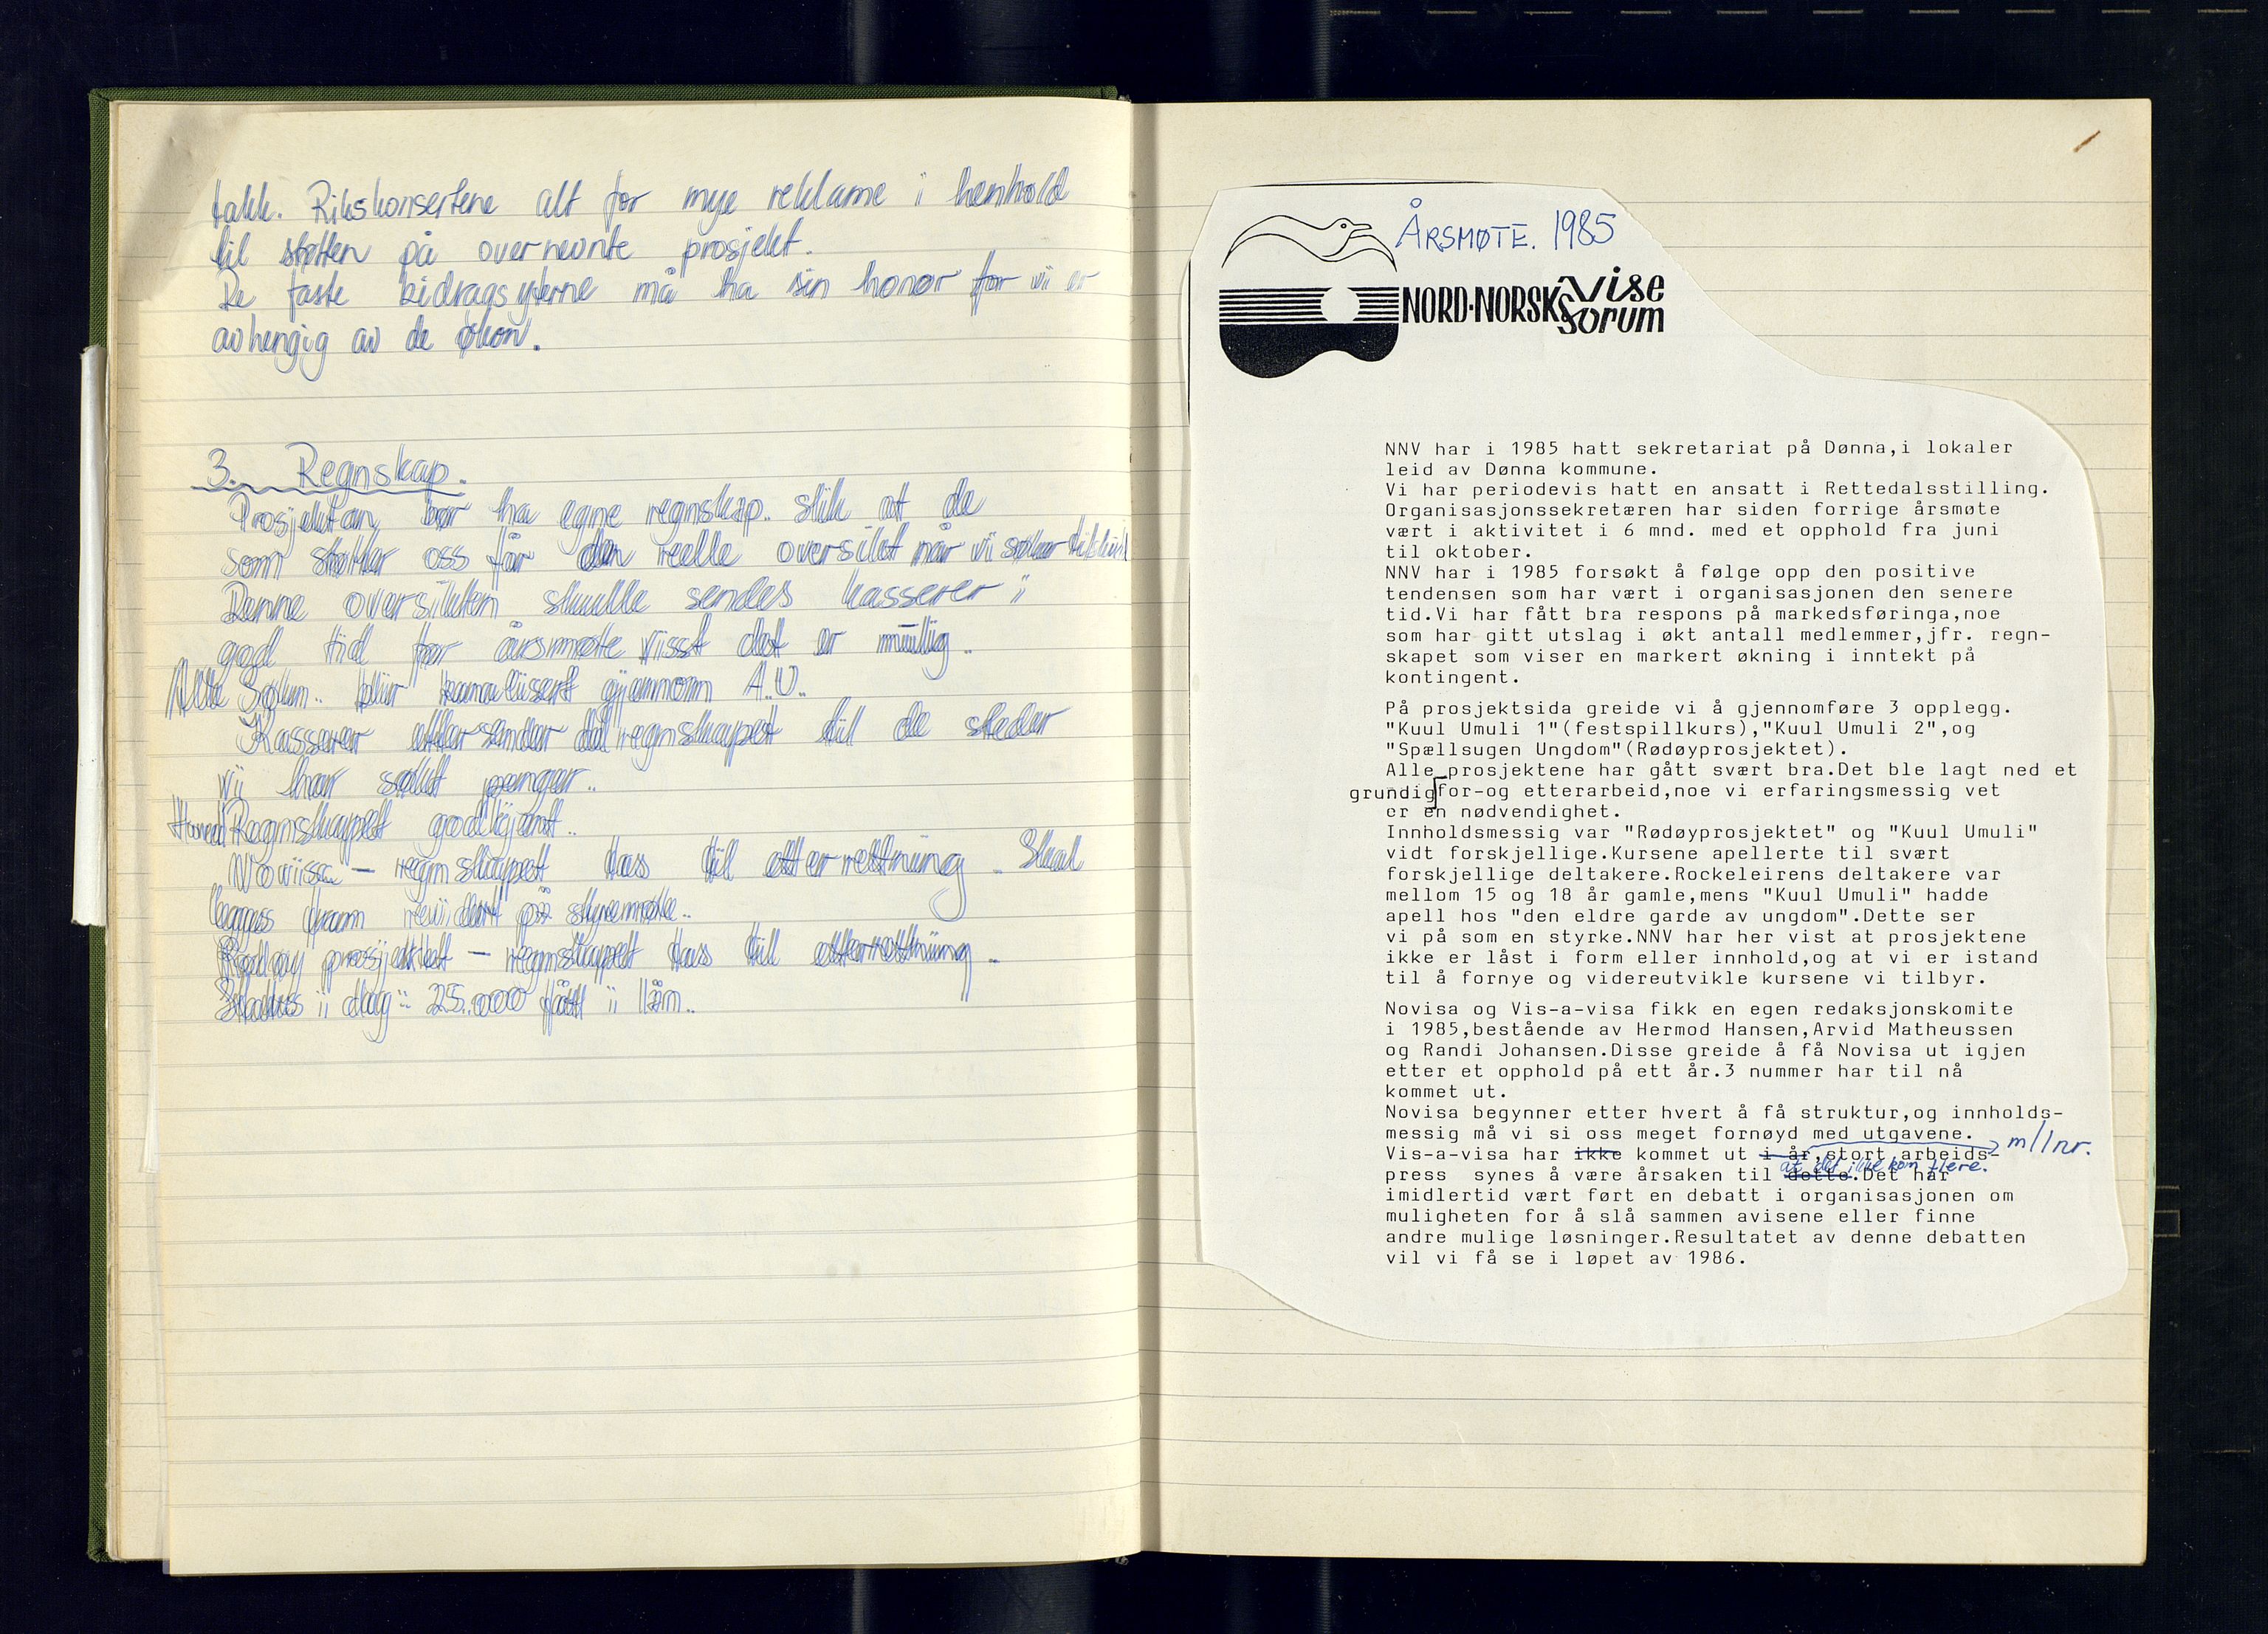 takk. Rikskonsertene alt for mye reklame i henhold
til støtten på overnevnte prosjekt.
De faste bidragsyterne må ha sin honor for vi er
avhengig av de økon.
3. Regnskap.
Prosjektan bør ha egne regnskap. slik at de
som støtter oss får den reelle oversikt når vi søker tilskud
Denne oversikten skulle sendes kasserer i
god tid før årsmøte visst det er mulig.
Alle Søkn. blir kanalisert gjennom A.U.
Kasserer ettersender regnskapet til de steder
vi har søkt penger.
Hoved Regnskapet godkjent.
Novisa - regnskapet tas til etterretning. Skal
legges fram revidert på styremøte.
Rødøy prosjektet - regnskapet tas til etterretning.
Status i dag: 25.000 fått i lån.
ÅRSMØTE. 1985
NORD-NORSK Vise
forum
NNV har i 1985 hatt sekretariat på Dønna,i lokaler
leid av Dønna kommune.
Vi har periodevis hatt en ansatt i Rettedalsstilling.
Organisasjonssekretæren har siden forrige årsmøte
vært i aktivitet i 6 mnd. med et opphold fra juni
til oktober.
NNV har i 1985 forsøkt å følge opp den positive
tendensen som har vært i organisasjonen den senere
tid.Vi har fått bra respons på markedsføringa,noe
som har gitt utslag i økt antall medlemmer,jfr. regn-
skapet som viser en markert økning i inntekt på
kontingent.
På prosjektsida greide vi å gjennomføre 3 opplegg.
"Kuul Umuli 1"(festspillkurs),"Kuul Umuli 2",og
"Spællsugen Ungdom"(Rødøyprosjektet).
Alle prosjektene har gått svært bra.Det ble lagt ned et
grundig for-og etterarbeid,noe vi erfaringsmessig vet
er en nødvendighet.
Innholdsmessig var "Rødøyprosjektet" og "Kuul Umuli"
vidt forskjellige.Kursene apellerte til svært
forskjellige deltakere.Rockeleirens deltakere var
mellom 15 og 18 år gamle,mens "Kuul Umuli" hadde
apell hos "den eldre garde av ungdom".Dette ser
vi på som en styrke.NNV har her vist at prosjektene
ikke er låst i form eller innhold,og at vi er istand
til å fornye og videreutvikle kursene vi tilbyr.
Novisa og Vis-a-visa fikk en egen redaksjonskomite
i 1985,bestående av Hermod Hansen,Arvid Matheussen
og Randi Johansen.Disse greide å få Novisa ut igjen
etter et opphold på ett år.3 nummer har til nå
kommet ut.
Novisa begynner etter hvert å få struktur,og innholds-
messig må vi si oss meget fornøyd med utgavene.
Vis-a-visa har ikke kommet ut i år,stort arbeids- m/1nr.
at det ikke kom flere.
press synes å være årsaken til dette.Det har
imidlertid vært ført en debatt i organisasjonen om
muligheten for å slå sammen avisene eller finne
andre mulige løsninger.Resultatet av denne debatten
vil vi få se i løpet av 1986.